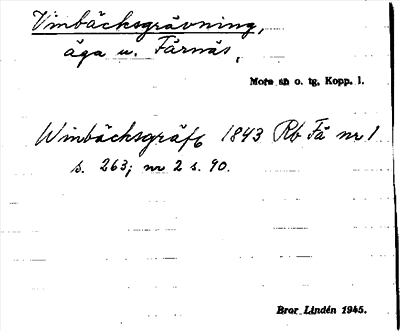 Vinbäcksgrävning,
äga u. Färnäs,
Mora sn o. tg, Kopp. l.
Winbäcksgräfb 1843 Rb Fä nr 1
s. 263; nr 2 s. 90.
Bror Lindén 1945.